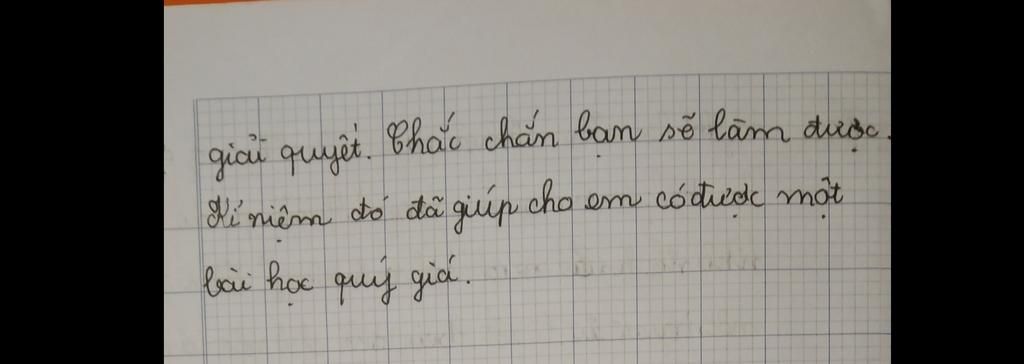 giải quyết. Chắc chắn bạn sẽ làm được.
Kỉ niệm đó đã giúp cho em có được một
bài học quý giá.